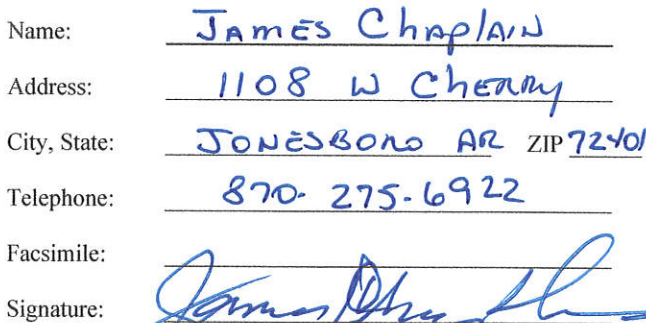 Name: James Chaplain
Address: 1108 W Cherry
City, State: Jonesboro AR ZIP 72401
Telephone: 870- 275-6922
Facsimile:
Signature: James Chaplain